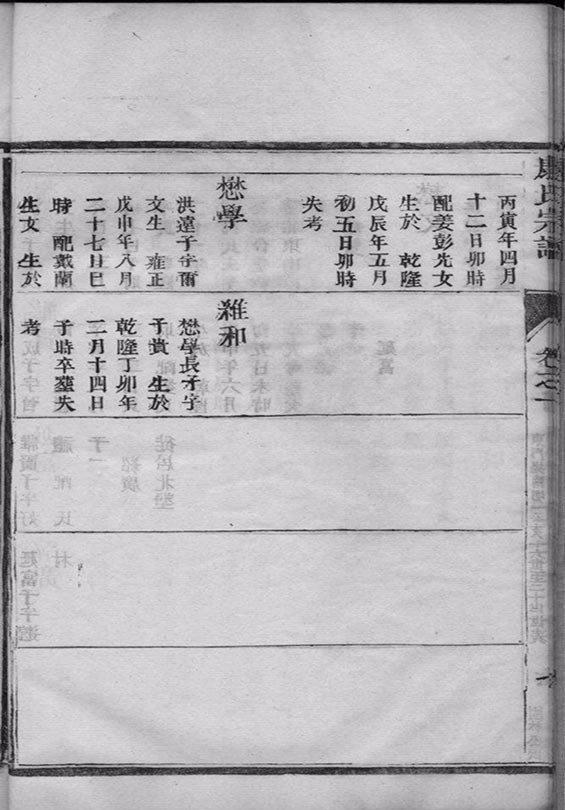 丙寅年四月
十二日卯時
配姜彭先女
生於 乾隆
戊辰年五月
初五日卯時
失考
懋學
洪達子字爾
文生 雍正
戊申年八月
二十七日巳
時 配戴蘭
生女 生於
維和
懋學長子字
子貴 生於
乾隆丁卯年
二月十四日
子時卒塟失
考
氏宗譜